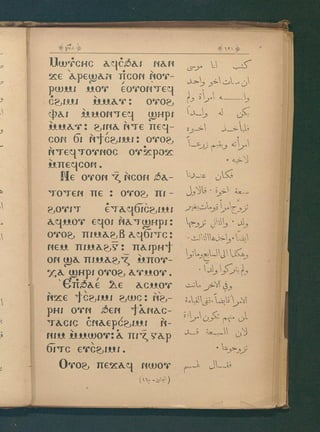 Ⲙⲱⲩ̀ⲥⲏⲥ ⲁϥⲥ̀ϧⲁⲓ ⲛⲁⲛ
ϫⲉ ⲁⲣⲉϣⲁⲛ ⲡ̀ⲥⲟⲛ ⲛ̀ⲟⲩ-
ⲣⲱⲙⲓ ⲙⲟⲩ ⲉ̀ⲟⲩⲟⲛⲧⲉϥ
ⲥ̀ϩⲓⲙⲓ ⲙ̀ⲙⲁⲩ: ⲟⲩⲟϩ
ⲫⲁⲓ ⲙ̀ⲙⲟⲛⲧⲉϥ ϣⲏⲣⲓ
ⲙ̀ⲙⲁⲩ: ϩⲓⲛⲁ ⲛ̀ⲧⲉ ⲡⲉϥ-
ⲥⲟⲛ ϭⲓ ⲛ̀ϯⲥ̀ϩⲓⲙⲓ: ⲟⲩⲟϩ
ⲛ̀ⲧⲉϥⲧⲟⲩⲛⲟⲥ ⲟⲩϫ̀ⲣⲟϫ
ⲙ̀ⲡⲉϥⲥⲟⲛ.
Ⲛⲉ ⲟⲩⲟⲛ ⲍ̅ ⲛ̀ⲥⲟⲛ ϧⲁ-
ⲧⲟⲧⲉⲛ ⲡⲉ : ⲟⲩⲟϩ ⲡⲓ-
ϩⲟⲩⲓⲧ ⲉ̀ⲧⲁϥϭⲓⲥ̀ϩⲓⲙⲓ
ⲁϥⲙⲟⲩ ⲉϥⲟⲓ ⲛ̀ⲁⲧϣⲏⲣⲓ:
ⲟⲩⲟϩ ⲡⲓⲙⲁϩ ⲃ̅ ⲁϥϭⲓⲧⲥ:
ⲛⲉⲙ ⲡⲓⲙⲁϩ ⲅ̅: ⲡⲁⲓⲣⲏϯ
ⲟⲛ ϣⲁ ⲡⲓⲙⲁϩ ⲍ̅ ⲙ̀ⲡⲟⲩ-
ⲭⲁ ϣⲏⲣⲓ ⲟⲩⲟϩ ⲁⲩⲙⲟⲩ.
Ⲉⲡϧⲁⲉ̀ ⲇⲉ ⲁⲥⲙⲟⲩ
ⲛ̀ϫⲉ ϯⲥ̀ϩⲓⲙⲓ ϩⲱⲥ: ⲛ̀ϩ-
ⲣⲏⲓ ⲟⲩⲛ ϧⲉⲛ ϯⲁ̀ⲛⲁⲥ-
ⲧⲁⲥⲓⲥ ⲥ̀ⲛⲁⲉⲣⲥ̀ϩⲓⲙⲓ ⲛ̀-
ⲛⲓⲙ ⲙ̀ⲙⲱⲟⲩ: ⲁ̀ ⲡⲓⲍ̅ ⲅⲁⲣ
ϭⲓⲧⲥ ⲉⲩⲥ̀ϩⲓⲙⲓ.
Ⲟⲩⲟϩ ⲡⲉϫⲁϥ ⲛⲱⲟⲩ
كتب لنا موسى
ان مات اخو واحد
وله امرأة ولم
يكن له ولد
فليأخذ اخوه
امرأته ويقيم زرعاً
لاخيه ٠
فكان عندنا
سبعة اخوة ٠ فالاول
تزوج امرأة ومات بغير
ولد ٠ والثاني تزوجها
ايضاً ٠ واخذها الثالث ٠
وهكذا الى السابع وماتوا
ولم يتركوا ولداً ٠
وفي الآخر ماتت
الامرأة ايضاً ٠ ففي القيامة
لمن منهم تكون امرأة
لان السبعة قد
تزوجوها ٠
فقال لهم